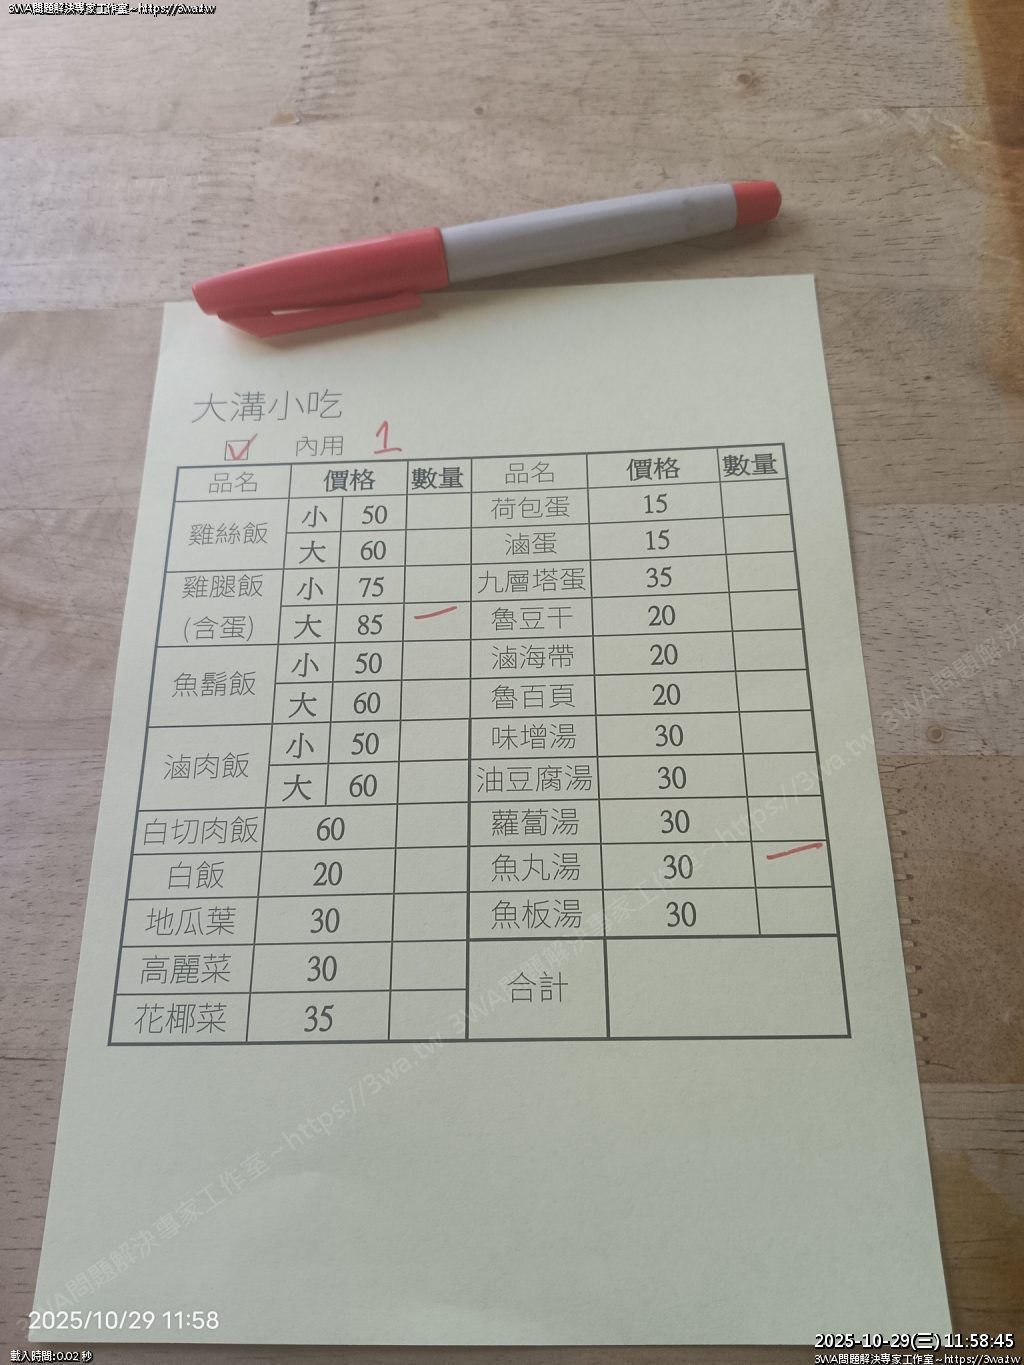 3WA問題解決專家工作室~https://3wa.tw
大溝小吃
☑ 內用 1
品名 價格 數量 品名 價格 數量
雞絲飯 小 50 荷包蛋 15
大 60 滷蛋 15
雞腿飯 小 75 九層塔蛋 35
(含蛋) 大 85 一 魯豆干 20
魚鬍飯 小 50 滷海帶 20
大 60 魯百頁 20
滷肉飯 小 50 味增湯 30
大 60 油豆腐湯 30
白切肉飯 60 蘿蔔湯 30
白飯 20 魚丸湯 30 一
地瓜葉 30 魚板湯 30
高麗菜 30 合計
花椰菜 35
3WA問題解決專家工作室~https://3wa.tw 3WA問題解決專家工作室~https://3wa.tw 3WA問題解決
2025/10/29 11:58
2025-10-29(三) 11:58:45
載入時間:0.02 秒
3WA問題解決專家工作室~https://3wa.tw